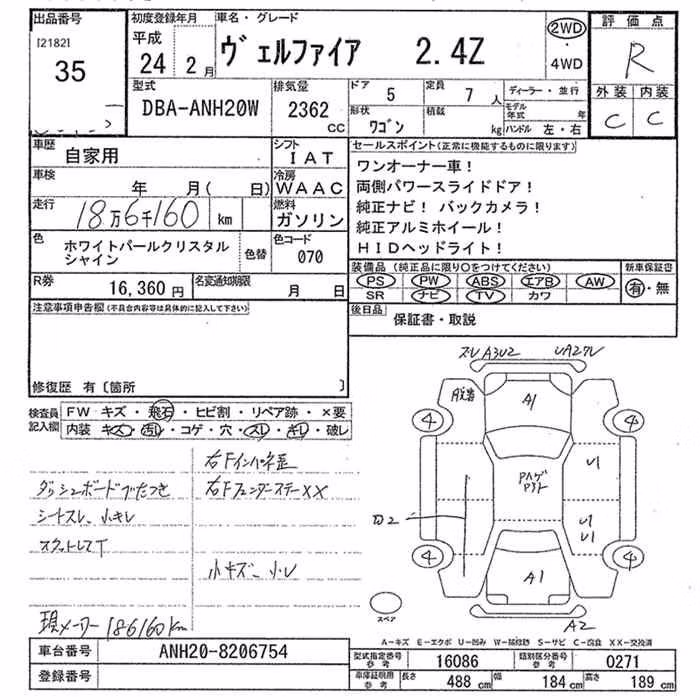 出品番号
[2182]
35
初度登録年月
平成
24 2月
車名・グレード
ヴェルファイア 2.4Z
2WD
・
4WD
評価点
R
外装 内装
C C
型式
DBA-ANH20W
排気量
2362
cc
ドア
5
定員
7人
形状
ワゴン
積載
kg
ディーラー・並行
モデル年式 年
ハンドル 左・右
車歴
自家用
シフト
IAT
車検
年 月( 日)
冷房
WAAC
走行
18万6千160 km
燃料
ガソリン
色
ホワイトパールクリスタル
シャイン
色替
色コード
070
R券
16,360円
名変通知期限
月 日
セールスポイント(正常に機能するものに限ります)
ワンオーナー車!
両側パワースライドドア!
純正ナビ! バックカメラ!
純正アルミホイール!
HIDヘッドライト!
装備品 (純正品に限り○をつけてください)
PS PW ABS エアB AW
SR ナビ TV カワ
新車保証書
有・無
後日品
保証書・取説
注意事項申告欄(不具合内容等は具体的に記入して下さい)
修復歴 有〔箇所 〕
検査員
記入欄
FW キズ・飛石・ヒビ割・リペア跡・×要
内装 キズ・汚レ・コゲ・穴・スレ・キレ・破レ
右Fインパネ歪
ダッシュボードブたつき
右Fフェンダーステー××
シートスレ、小キレ
スカットレスT
小キズ、小レ
現メーター186160km
A3U2
A1
4
4
U1
U1
U1
4
4
A1
A2
スペア
A-キズ E-エクボ U-凹み W-補修跡 S-サビ C-腐食 XX-交換済
車台番号
ANH20-8206754
登録番号
型式指定番号
参考
16086
類別区分番号
参考
0271
車庫証明用
参考
長さ
488 cm
幅
184 cm
高さ
189 cm